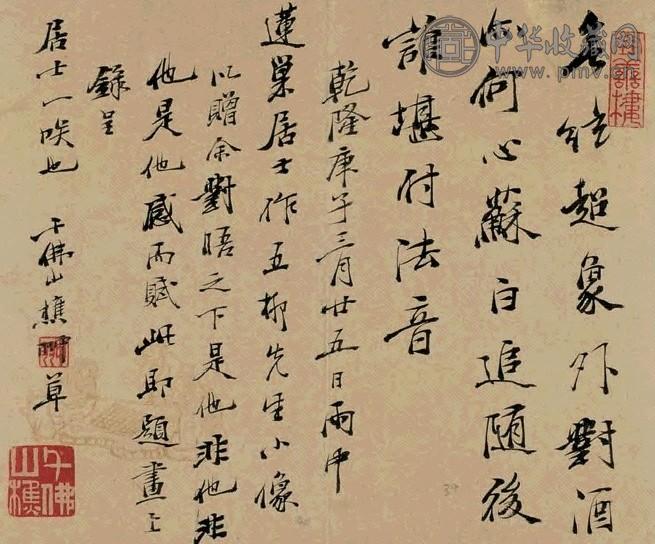 無絃超象外對酒
如何心蘇白追隨後
誰堪付法音
乾隆庚子三月廿五日雨中
蓮巢居士作五柳先生小像
以贈余對晤之下是他非他非
他是他感而賦此即題畫上
錄呈
居士一咲也 千佛山樵 草
千佛山樵
中华收藏网
www.pmv.cn